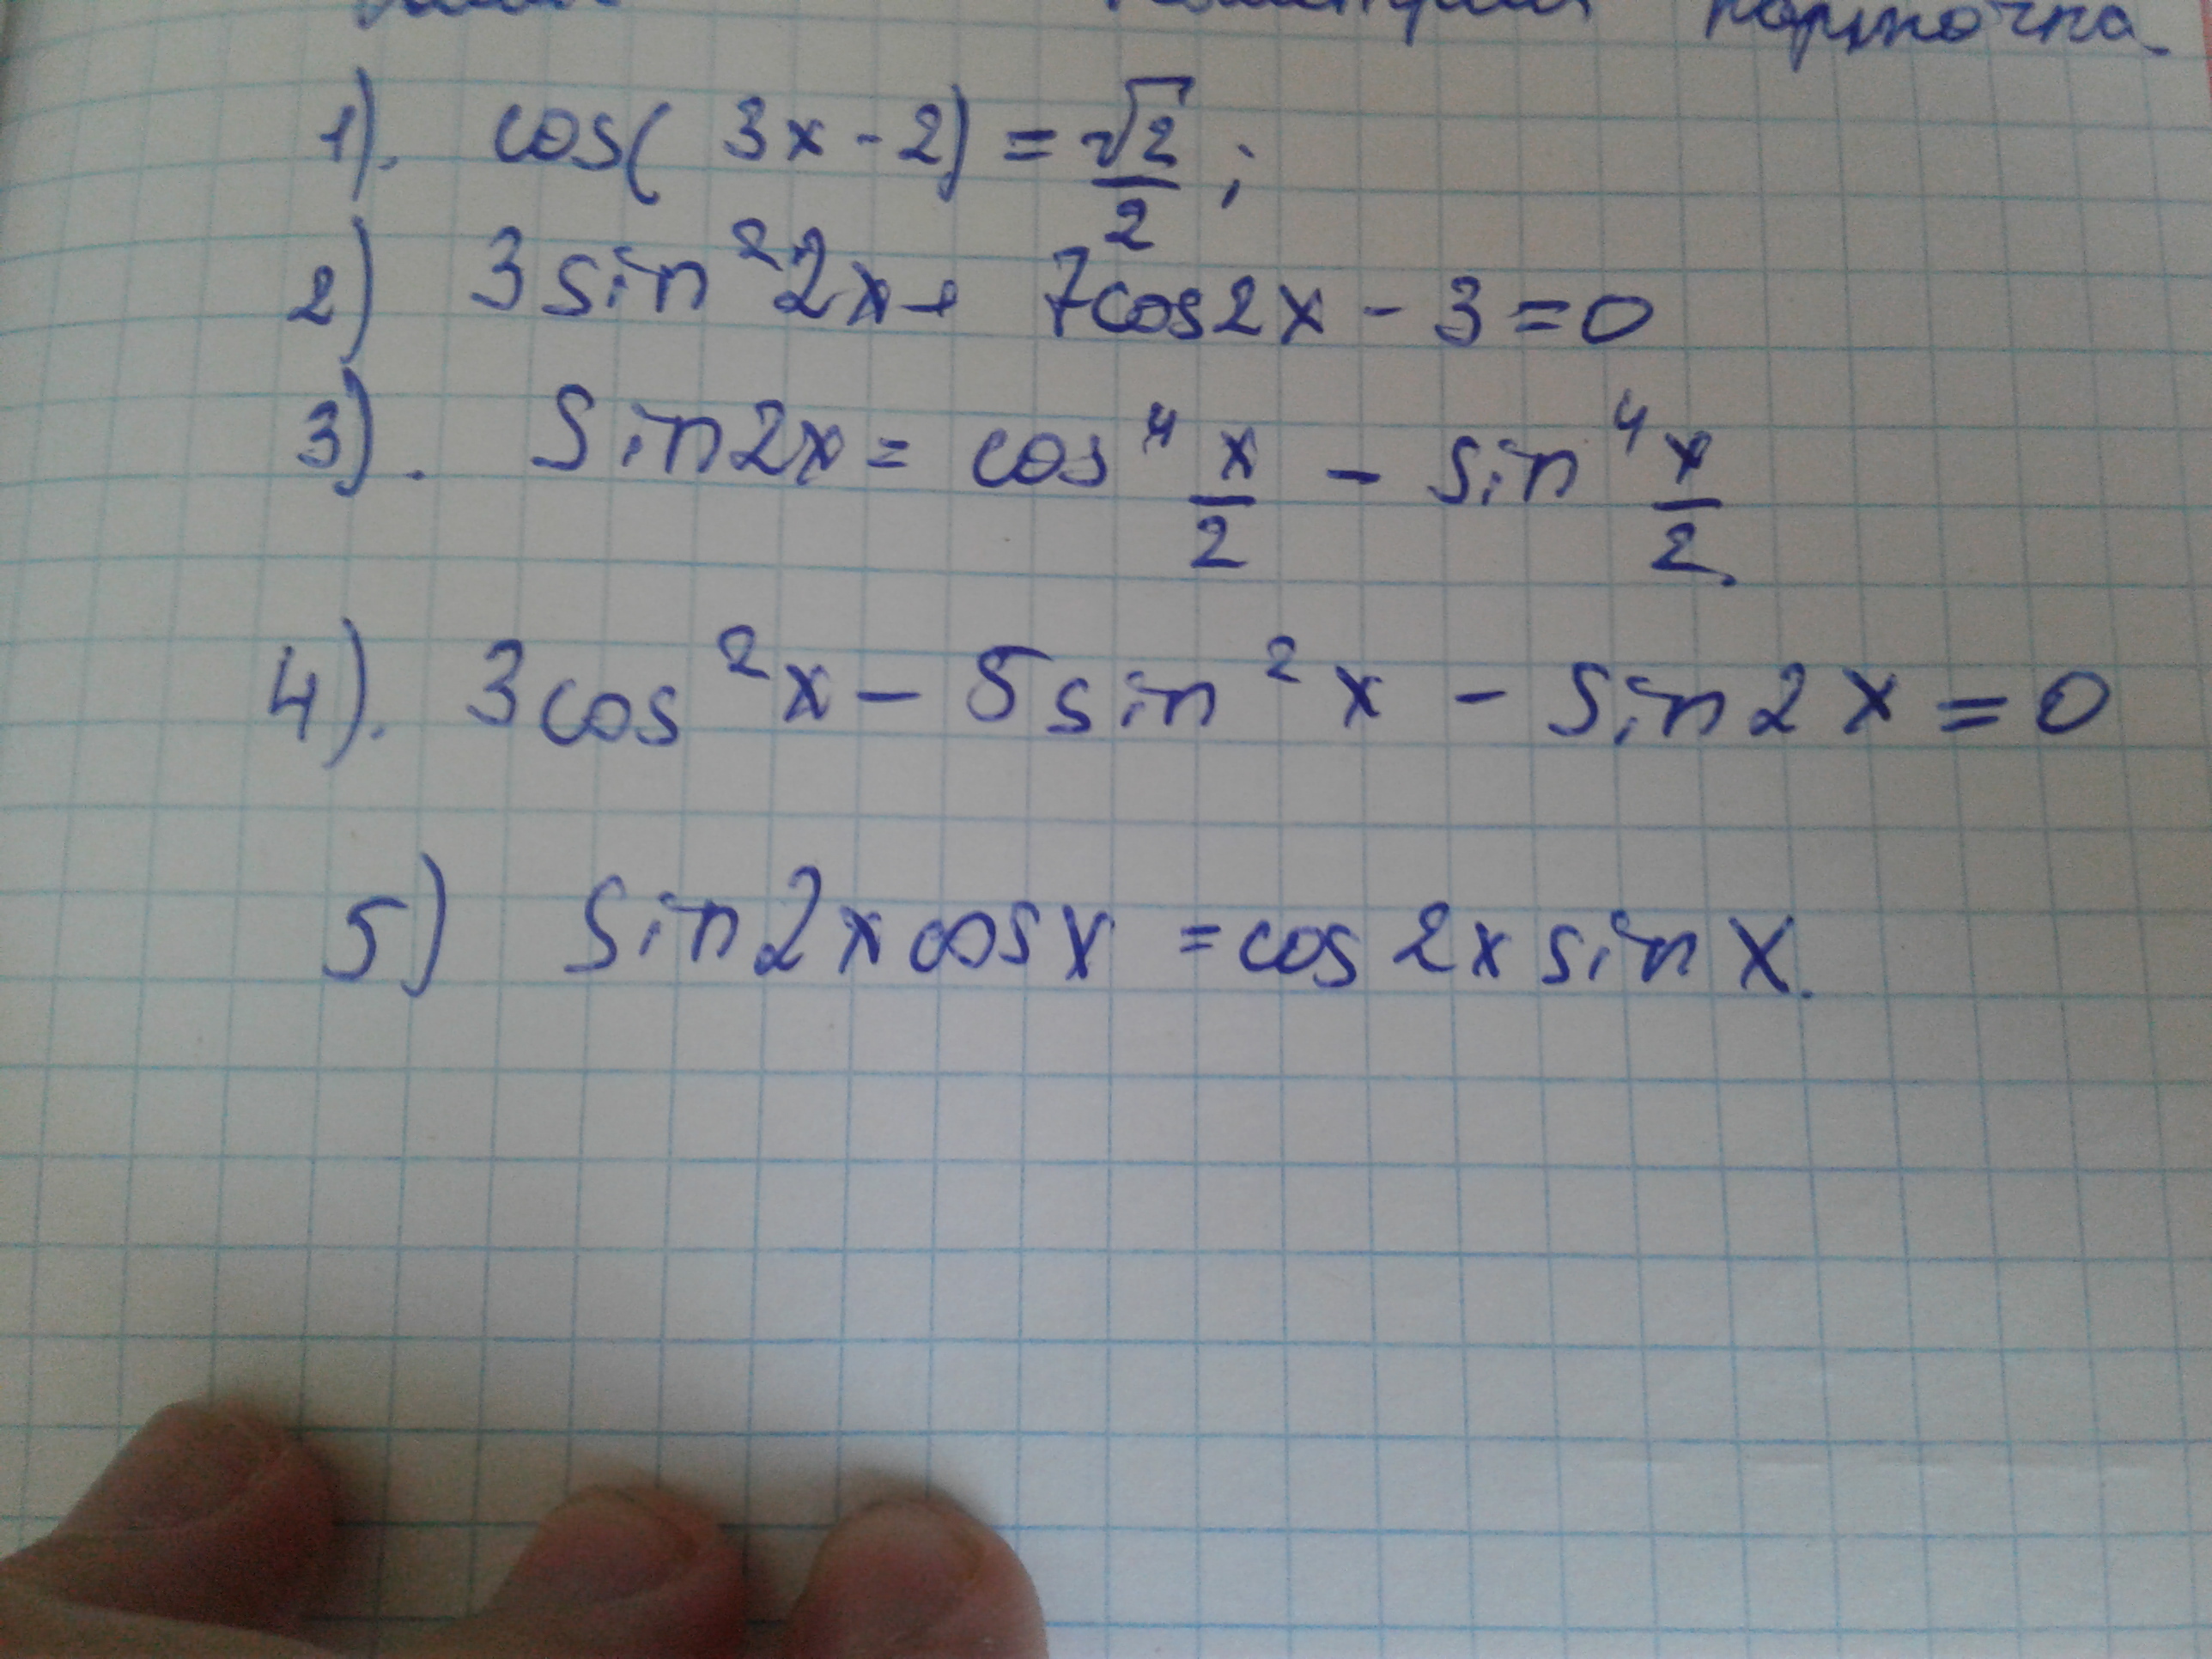 карточка.
1). cos(3x-2) = √2/2;
2) 3sin²2x + 7cos2x - 3 = 0
3). Sin2x = cos⁴ x/2 - sin⁴ x/2.
4). 3cos²x - 5sin²x - sin2x = 0
5) Sin2xcosx = cos2xsinx.